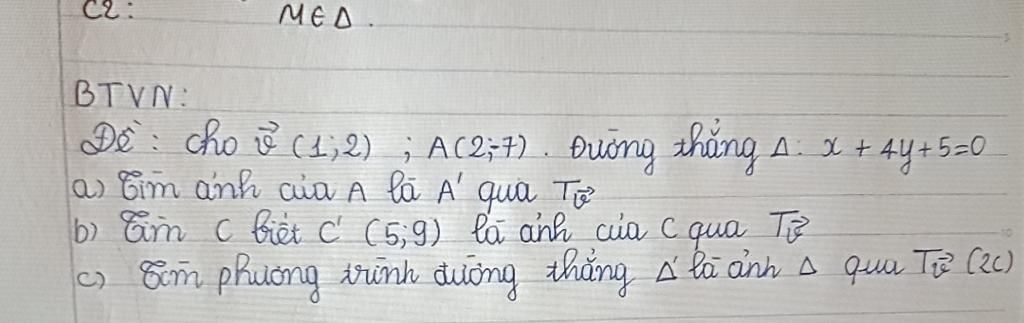 C2: M ∈ Δ.
BTVN:
Đề: Cho v⃗ (1;2) ; A(2;-7). Đường thẳng Δ: x + 4y + 5 = 0
a) Tìm ảnh của A là A' qua Tv⃗
b) Tìm C biết C' (5;9) là ảnh của C qua Tv⃗
c) Tìm phương trình đường thẳng Δ' là ảnh Δ qua Tv⃗ (2C)